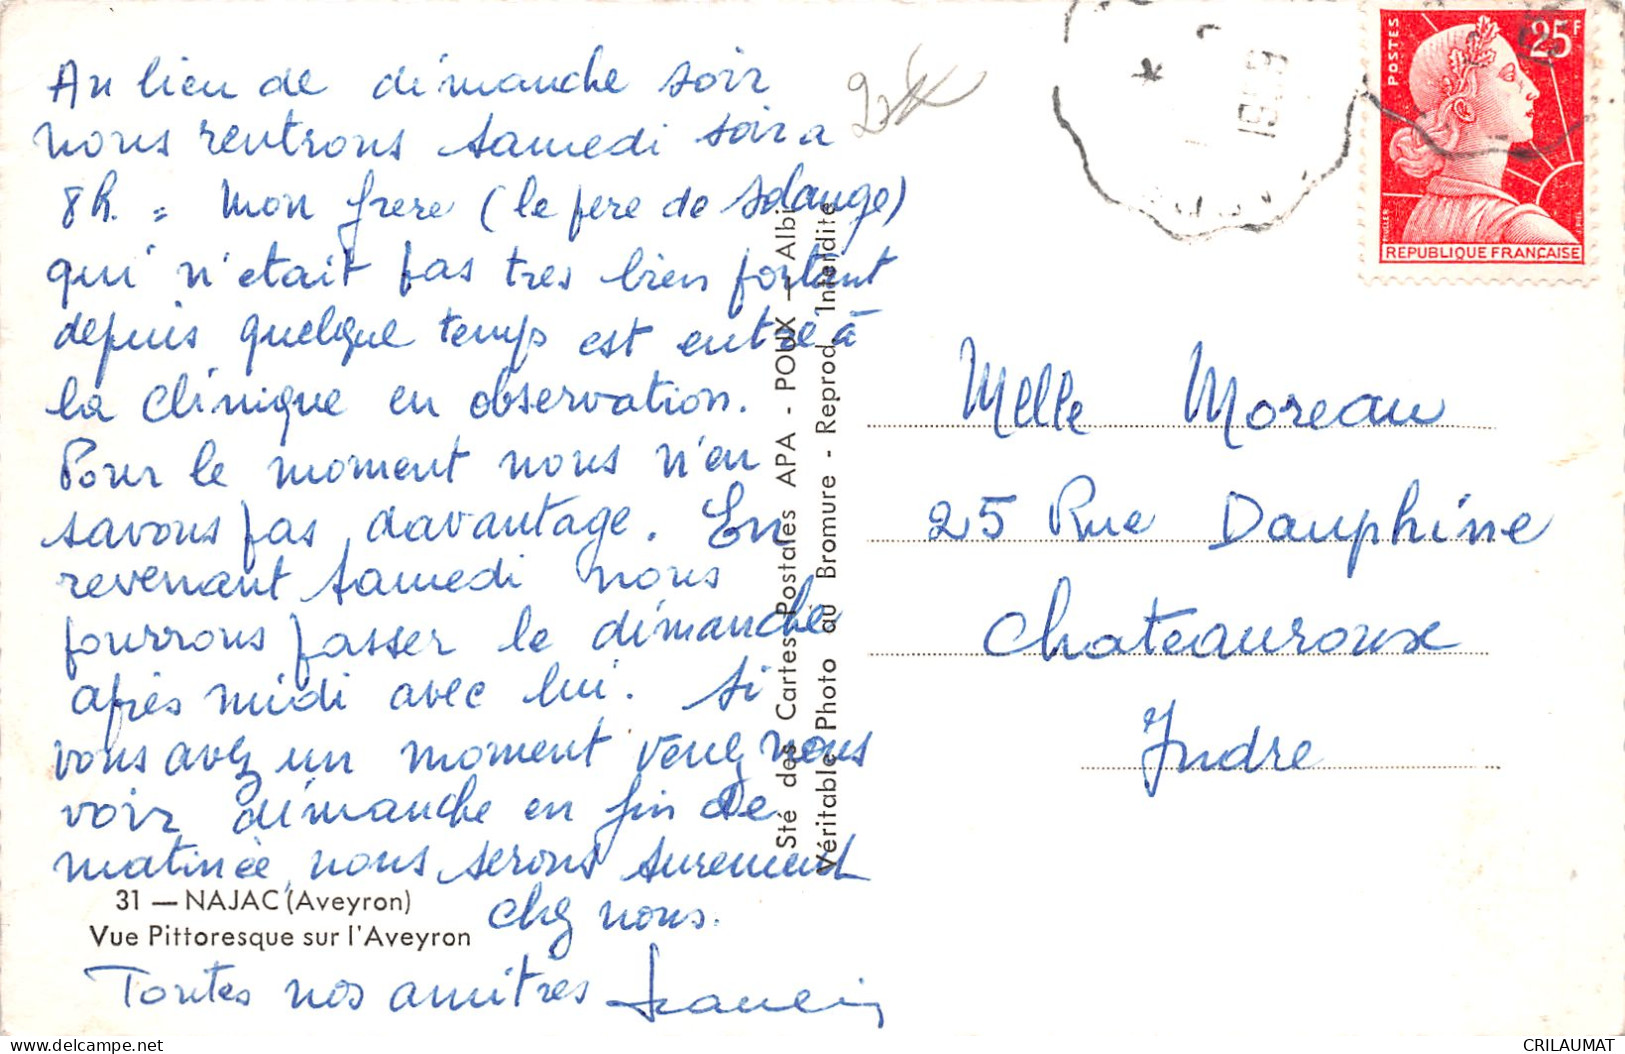 Au lieu de dimanche soir
nous rentrons samedi soir a
8h. = Mon frere (le pere de Solange)
qui n'etait pas tres bien portant
depuis quelque temps est entré à
la clinique en observation.
Pour le moment nous n'en
savons pas davantage. En
revenant samedi nous
pourrons passer le dimanche
après midi avec lui. Si
vous avez un moment venez nous
voir dimanche en fin de
matinée, nous serons surement
chez nous.
Toutes nos amitiés
31 — NAJAC (Aveyron)
Vue Pittoresque sur l'Aveyron
Sté des Cartes Postales APA - POUX - Albi
Véritable Photo au Bromure - Reprod. Interdite
POSTES
25F
MULLER
REPUBLIQUE FRANÇAISE
Melle Moreau
25 Rue Dauphine
Chateauroux
Indre
CRILAUMAT